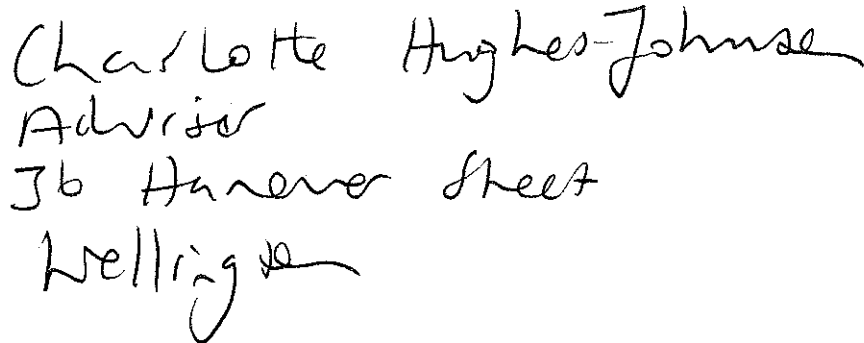 Charlotte Hughes-Johnson
Advisor
36 Hanover Street
Wellington